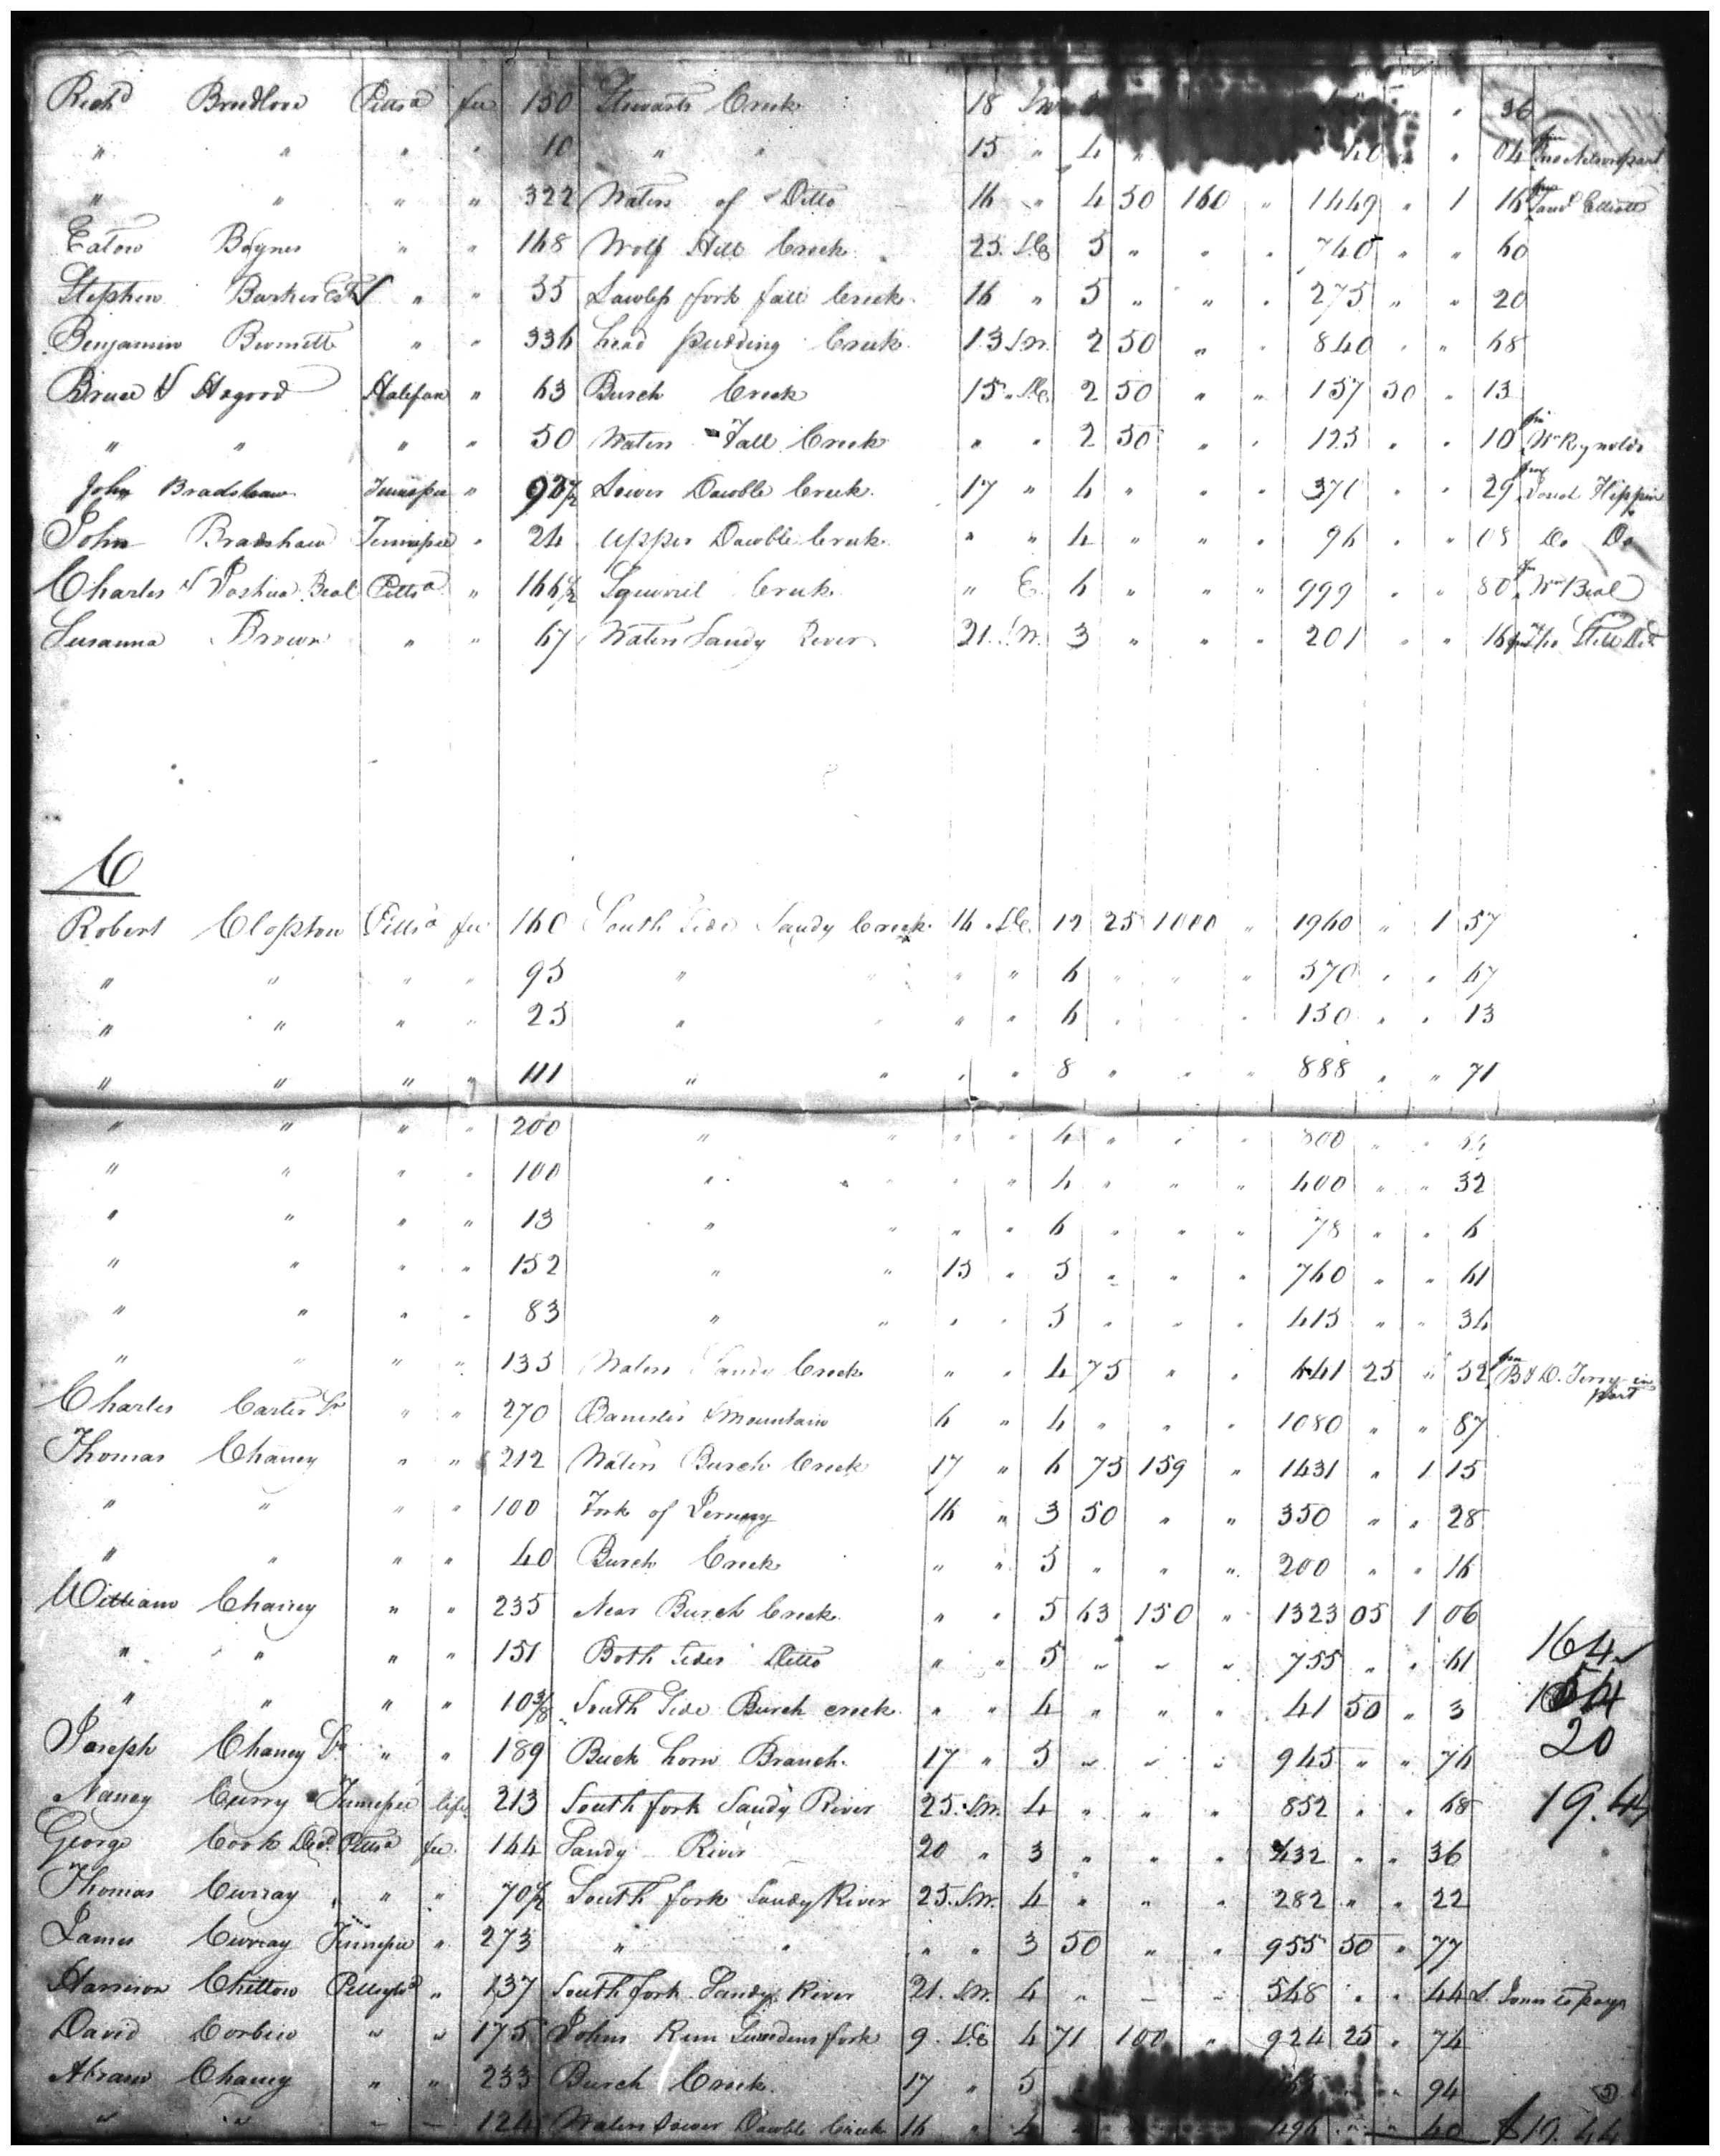 Richd Breedlove Pittsa fee 150 Stewarts Creek 18 SW 36
" " " " 10 " " 15 " 4 " 40 " " 04 fm
" " " " 322 Waters of Ditto 16 " 4 50 160 " 1449 " 1 16 fm Elliott
Eaton Baynes " " 148 Wolf Hill Creek 25 SE 5 " " " 740 " " 60
Stephen Barker Est " " 55 fork fall Creek 16 " 5 " " " 275 " " 20
Benjamin Burnett " " 336 head pudding Creek 13 SW. 2 50 " " 840 " " 68
Bruce & Hagood Halifax " 63 Burch Creek 15 SE. 2 50 " " 157 50 " 13
" " " " 50 Waters Fall Creek " " 2 50 " " 125 " " 10 fm Wm Reynolds
John Bradshaw Tennessee " 92 1/2 Lower Double Creek 17 " 4 " " " 371 " " 29 fm Flippin
John Bradshaw Tennessee " 24 Upper Double Creek " " 4 " " " 96 " " 08 Do Do
Charles & Joshua Beal Pittsa " 166 1/2 Squirrel Creek " E. 6 " " " 999 " " 80 fm Wm Beal
Susanna Brown " " 67 Waters Sandy River 21. SW. 3 " " " 201 " " 16 fm
C
Robert Clopton Pittsa fee 160 South Side Sandy Creek 16 SE. 12 25 1000 " 1960 " 1 57
" " " " 95 " " " " 6 " " " 570 " " 47
" " " " 25 " " " " 6 " " " 150 " " 13
" " " " 111 " " " " 8 " " " 888 " " 71
" " " " 200 " " " " 4 " " " 800 " " 64
" " " " 100 " " " " 4 " " " 400 " " 32
" " " " 13 " " " " 6 " " " 78 " " 6
" " " " 152 " " 15 " 5 " " " 760 " " 61
" " " " 83 " " " " 5 " " " 415 " " 34
" " " " 135 Waters Sandy Creek " " 4 75 " " 641 25 " 52 fm B & D. Terry in part
Charles Carter Sr " " 270 Banister & Mountain 6 " 4 " " " 1080 " " 87
Thomas Chaney " " 212 Waters Burch Creek 17 " 6 75 159 " 1431 " 1 15
" " " " 100 Fork of 16 " 3 50 " " 350 " " 28
" " " " 40 Burch Creek " " 5 " " " 200 " " 16
William Chaney " " 235 Near Burch Creek " " 5 63 150 " 1323 05 1 06
" " " " 151 Both Sides Ditto " " 5 " " " 755 " " 61 164
" " " " 10 3/8 South Side Burch creek " " 4 " " " 41 50 " 3
Joseph Chaney Sr " " 189 Buck horn Branch. 17 " 5 " " " 945 " " 76 20
Nancy Curry Tennessee life 213 South fork Sandy River 25. SW. 4 " " " 852 " " 68 19.44
George Cook Decd. Pittsa fee 144 Sandy River 20 " 3 " " " 432 " " 36
Thomas Curray " " 70 1/2 South fork Sandy River 25. SW. 4 " " " 282 " " 22
James Curray Tennessee " 273 " " " " 3 50 " " 955 50 " 77
Harrison Chilton " 137 South fork Sandy River 21. SW. 4 " " " 548 " " 44 to pay
David Corbin " " 175 Johns Run fork 9. SE 4 71 100 " 924 25 " 74
Abram Chaney " " 233 Burch Creek. 17 " 5 94
" " " " 124 Waters Lower Double Creek 16 " 4 " " " 496 " " 40 $19.44